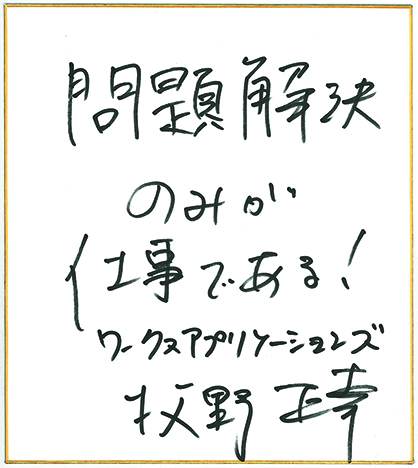 問題解決
のみが
仕事である!
ワークスアプリケーションズ
牧野正幸